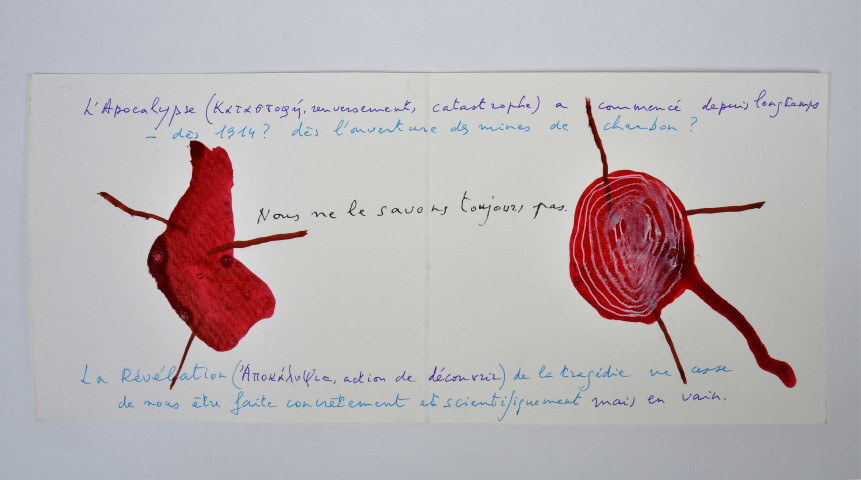 L'Apocalypse (Καταστοφή, renversement, catastrophe) a commencé depuis longtemps
– dès 1914 ? dès l'ouverture des mines de charbon ?
Nous ne le savons toujours pas.
La Révélation (Ἀποκάλυψις, action de découvrir) de la tragédie ne cesse
de nous être faite concrètement et scientifiquement mais en vain.